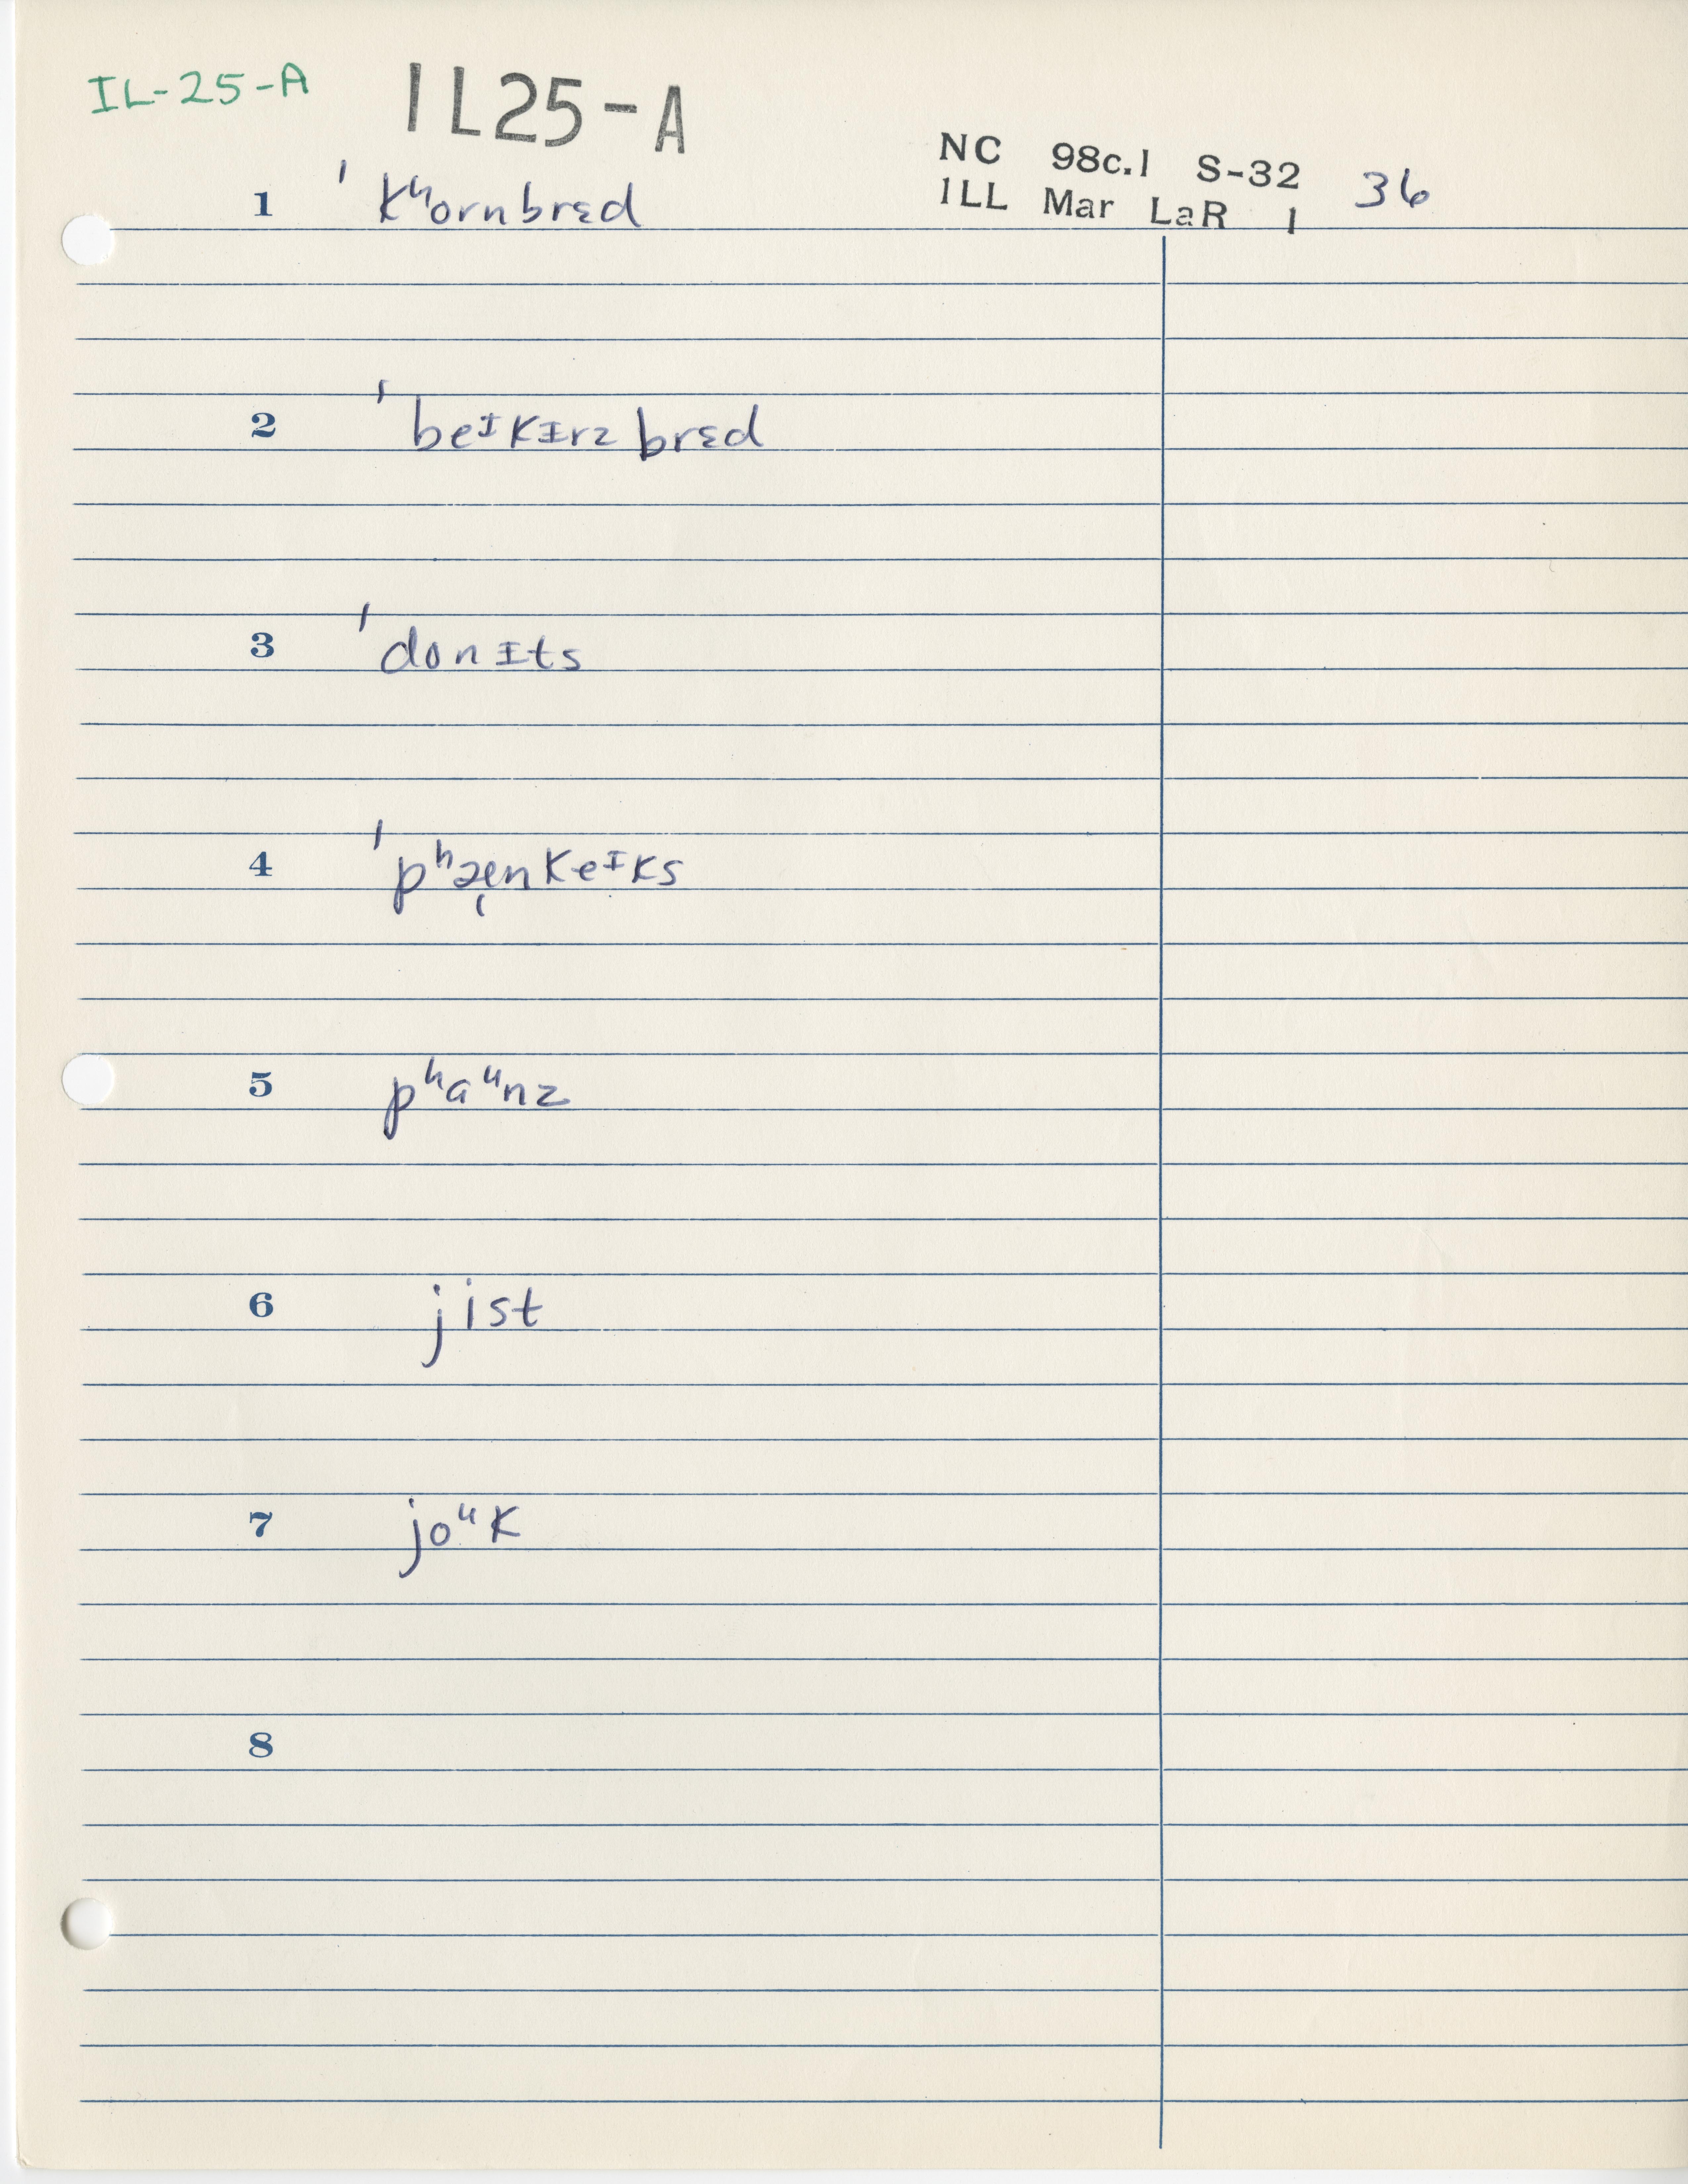 IL-25-A IL25-A
NC 98c.1 S-32 36
ILL Mar LaR 1
1 ˈkʰornbrɛd
2 ˈbeᶦkɪrz brɛd
3 ˈdonɪts
4 ˈpʰæ̨nkeᶦks
5 pʰaᵘnz
6 jist
7 joᵘk
8